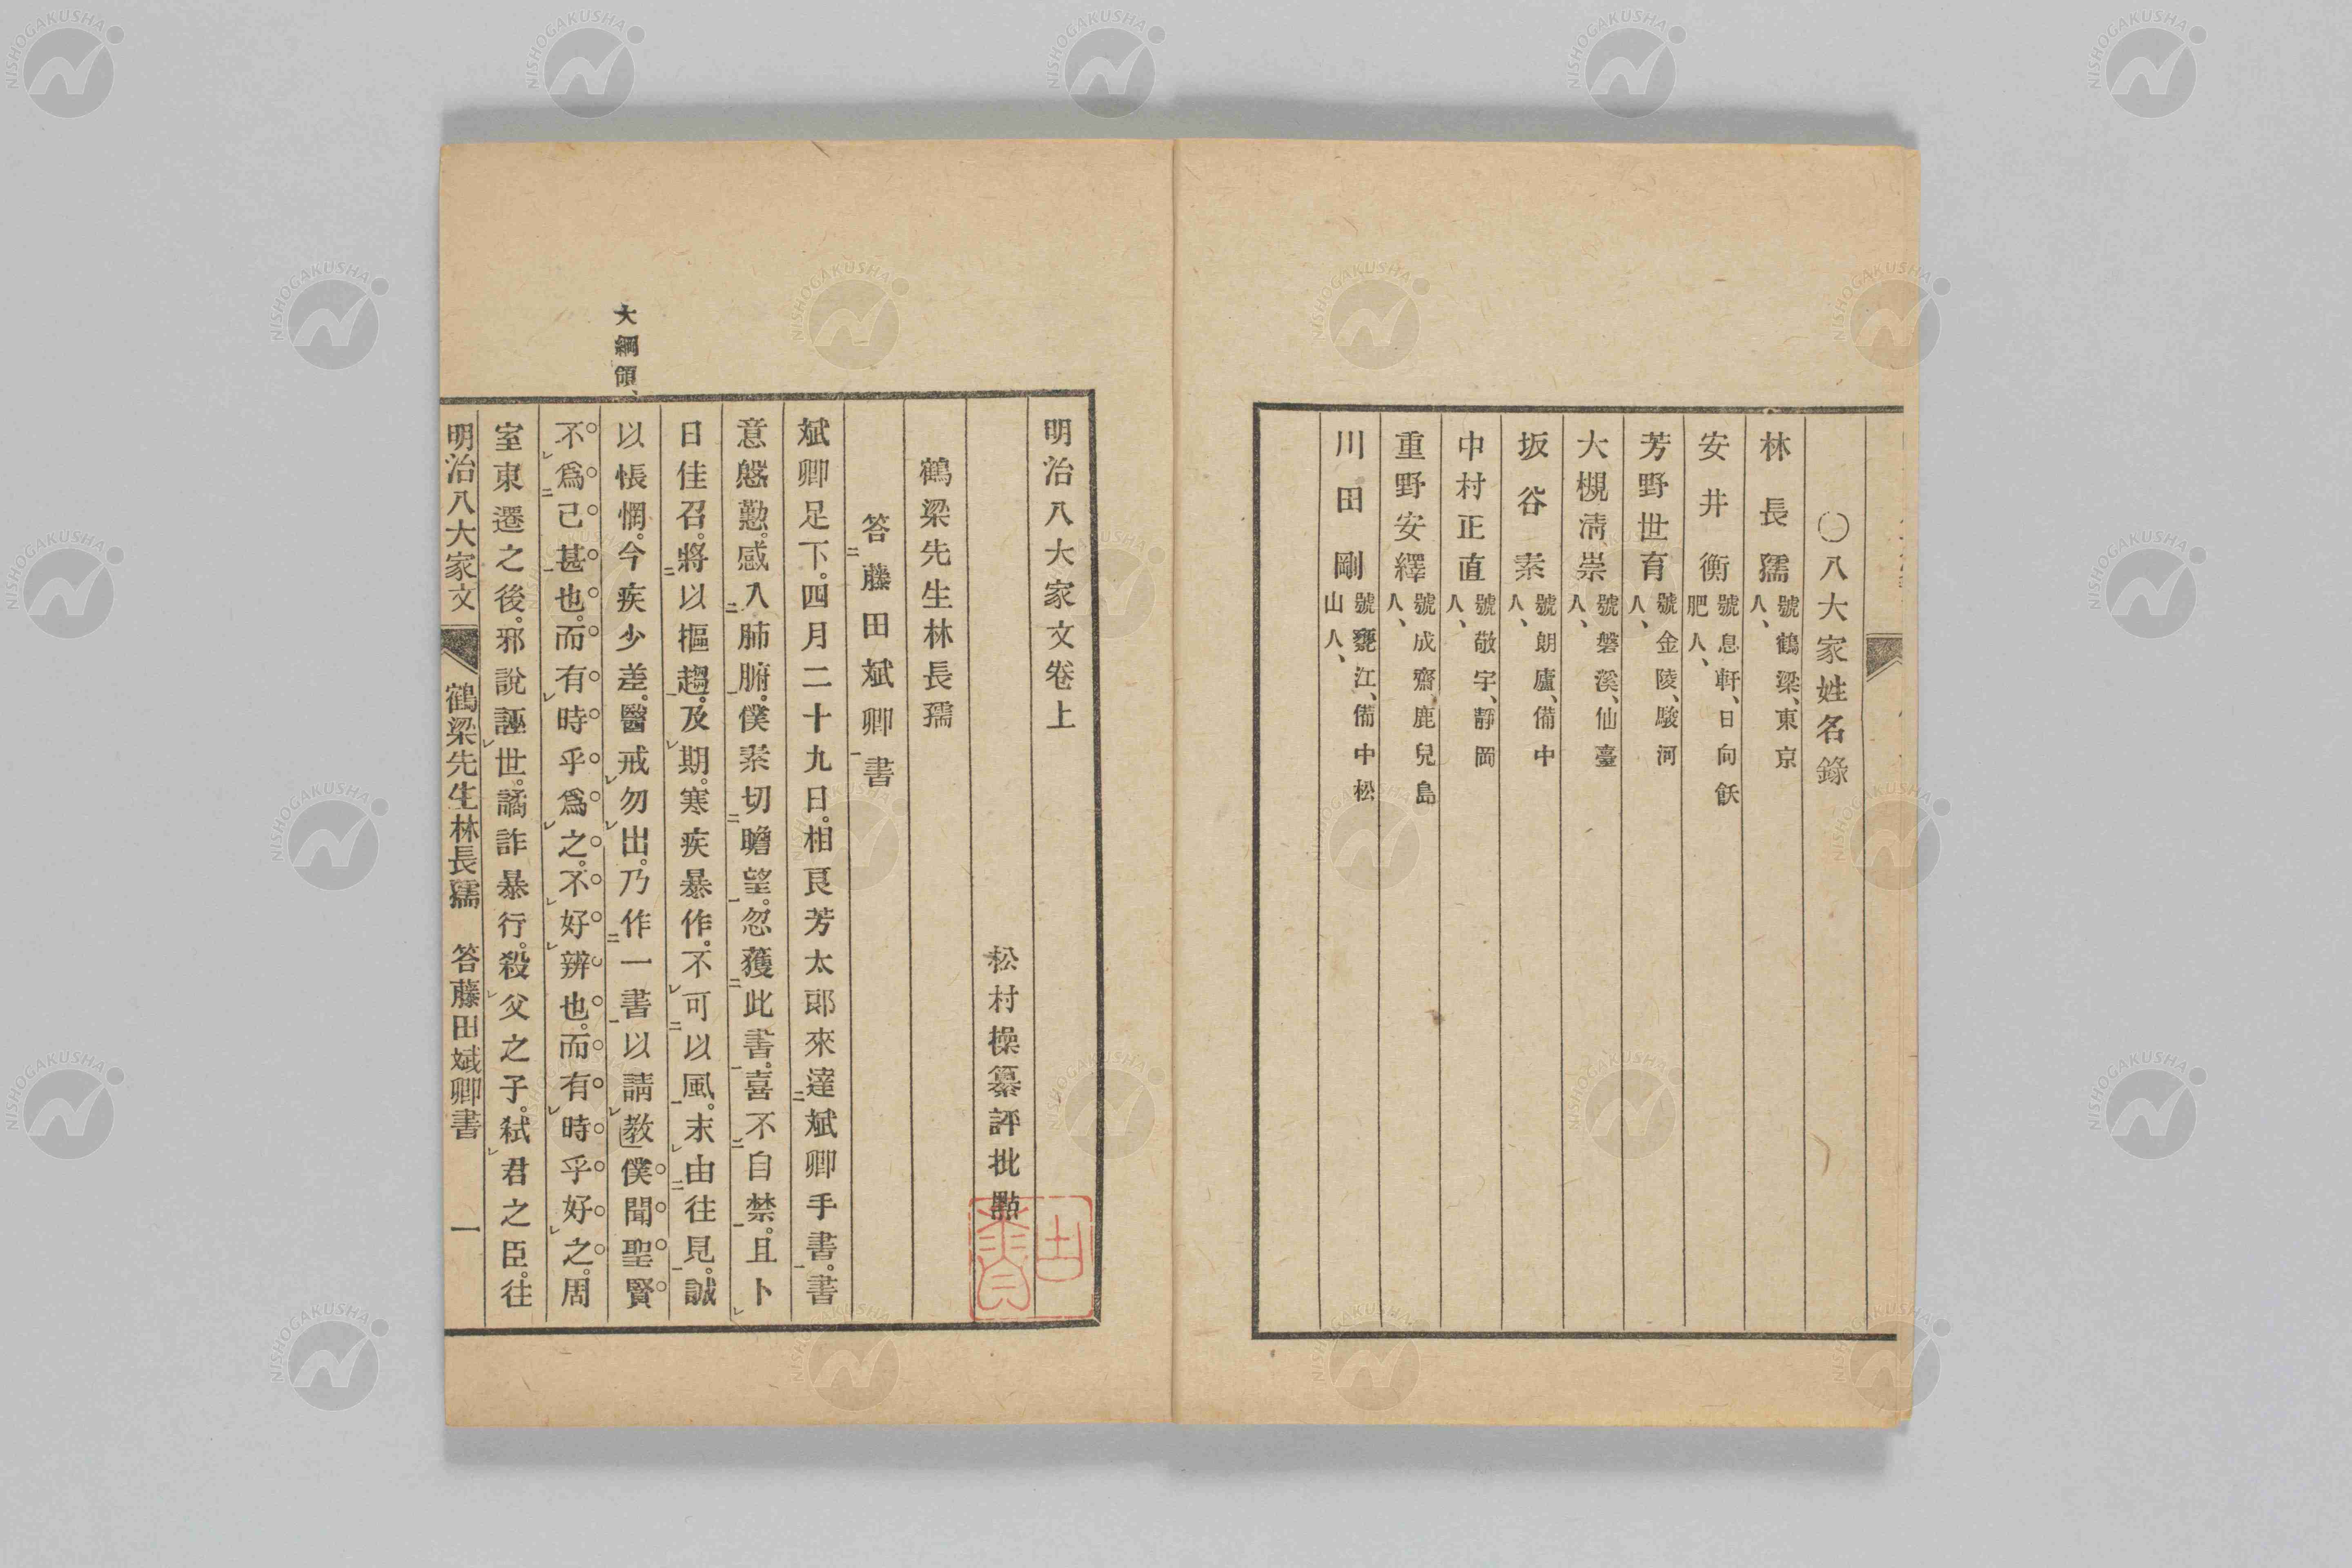 ○八大家姓名錄
林長孺 號鶴梁、東京人、
安井衡 號息軒、日向飫肥人、
芳野世育 號金陵、駿河人、
大槻淸崇 號磐溪、仙臺人、
坂谷素 號朗廬、備中人、
中村正直 號敬宇、靜岡人、
重野安繹 號成齋、鹿兒島人、
川田剛 號甕江、備中松山人、
明治八大家文卷上
松村操纂評批點
鶴梁先生林長孺
答藤田斌卿書
斌卿足下。四月二十九日。相良芳太郎來達斌卿手書。書
意慇懃。感入肺腑。僕素切瞻望。忽獲此書。喜不自禁。且卜
日佳召。將以摳趨。及期。寒疾暴作。不可以風。末由往見。誠
以悵惘。今疾少差。醫戒勿出。乃作一書以請敎。僕聞聖賢
大綱領、
不爲已甚也。而有時乎爲之。不好辨也。而有時乎好之。周
室東遷之後。邪說誣世。譎詐暴行。殺父之子。弑君之臣。往
明治八大家文 鶴梁先生林長孺 答藤田斌卿書 一
NISHOGAKUSHA